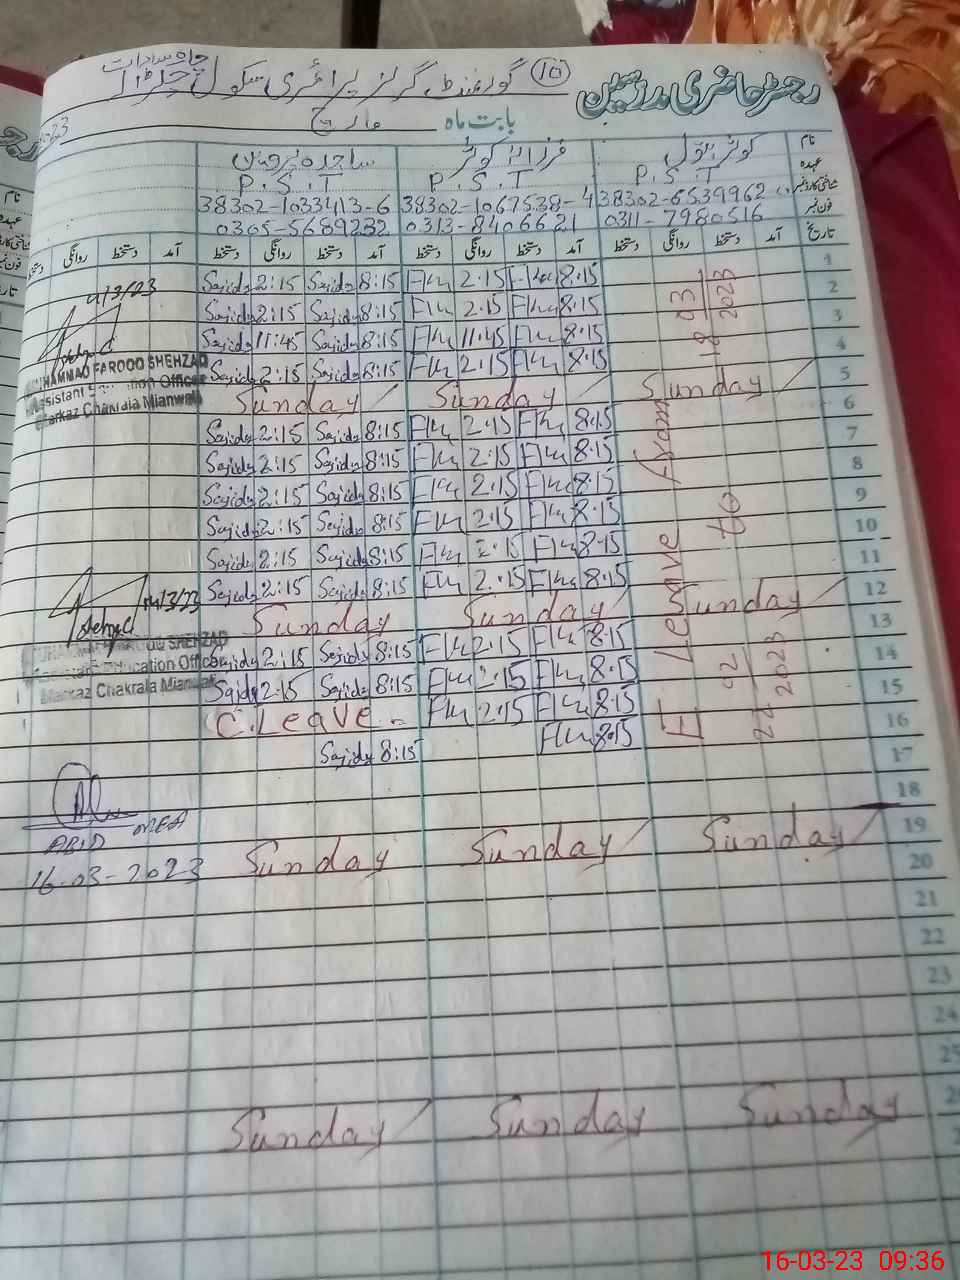 رجسٹر حاضری مدرسین
10 گورنمنٹ گرلز پرائمری سکول
چاہ سادات
بابت ماہ مارچ
نام کوثر بتول فرزانہ کوثر ساجدہ پروین
عہدہ P.S.T P.S.T P.S.T
شناختی کارڈ نمبر 38302-6539962 38302-1067538-4 38302-1033413-6
فون نمبر 0311-7980516 0313-8406621 0305-5689232
تاریخ آمد دستخط روانگی دستخط آمد دستخط روانگی دستخط آمد دستخط روانگی دستخط آمد دستخط روانگی دستخط
1 8:15 2:15 8:15 Sajida 2:15 Sajida
2 8:15 2:15 8:15 Sajida 2:15 Sajida
3 8:15 11:45 8:15 Sajida 11:45 Sajida
4 8:15 2:15 8:15 Sajida 2:15 Sajida
5 Sunday Sunday Sunday
6 8:15 2:15 8:15 Sajida 2:15 Sajida
7 8:15 2:15 8:15 Sajida 2:15 Sajida
8 8:15 2:15 8:15 Sajida 2:15 Sajida
9 8:15 2:15 8:15 Sajida 2:15 Sajida
10 8:15 2:15 8:15 Sajida 2:15 Sajida
11 8:15 2:15 8:15 Sajida 2:15 Sajida
12 Sunday Sunday Sunday
13 8:15 2:15 8:15 Sajida 2:15 Sajida
14 8:15 2:15 8:15 Sajida 2:15 Sajida
15 8:15 2:15 C.Leave
16 8:15 8:15 Sajida
17
18
19 Sunday Sunday Sunday
20
21
22
23
24
25
Sunday Sunday Sunday
Leave from
22 02 2023 to 18 03 2023
4/3/23
MUHAMMAD FAROOQ SHEHZAD
Assistant Education Officer
Markaz Chakrala Mianwali
14/3/23
MUHAMMAD FAROOQ SHEHZAD
Assistant Education Officer
Markaz Chakrala Mianwali
ABID MEA
16-03-2023
16-03-23 09:36